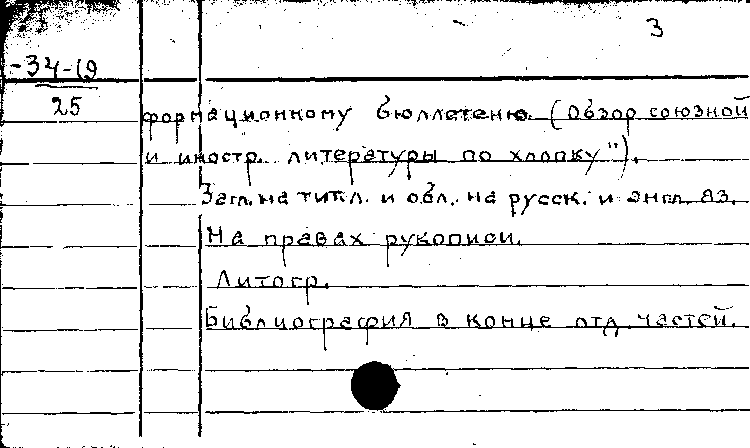 3
-34-19
25
формационному бюллетеню. (Обзор союзной
и иностр. литературы по хлопку").
Загл. на титл. и обл. на русск. и англ. яз.
На правах рукописи.
Литогр.
Библиография в конце отд. частей.